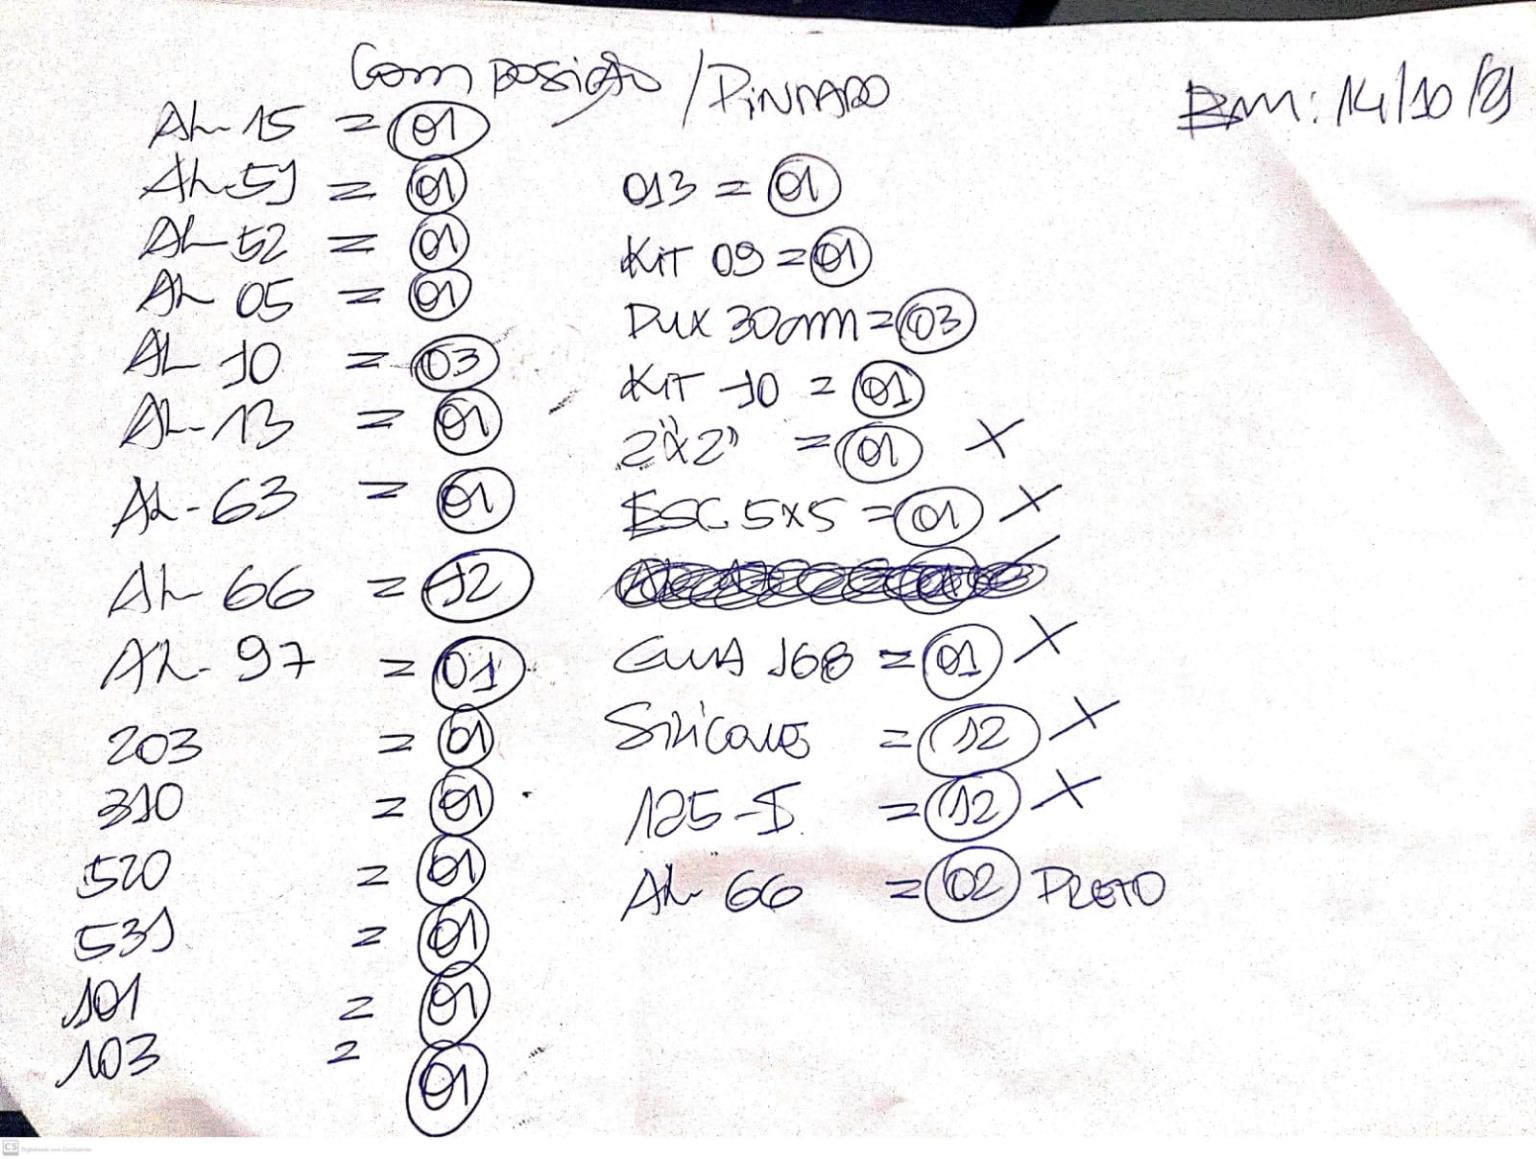 Composição / PINTADO
BM: 14/10/21
AL-15 = 01
AL-51 = 01
AL-52 = 01
AL 05 = 01
AL 10 = 03
AL-13 = 01
AL-63 = 01
AL-66 = 12
AL-97 = 01
203 = 01
310 = 01
520 = 01
531 = 01
101 = 01
103 = 01
013 = 01
KIT 09 = 01
DUX 30cm = 03
KIT 10 = 01
2"x2" = 01 X
ESC 5x5 = 01 X
GUIA 168 = 01 X
Silicone = 12 X
125-I = 12 X
AL 66 = 02 PRETO
CS